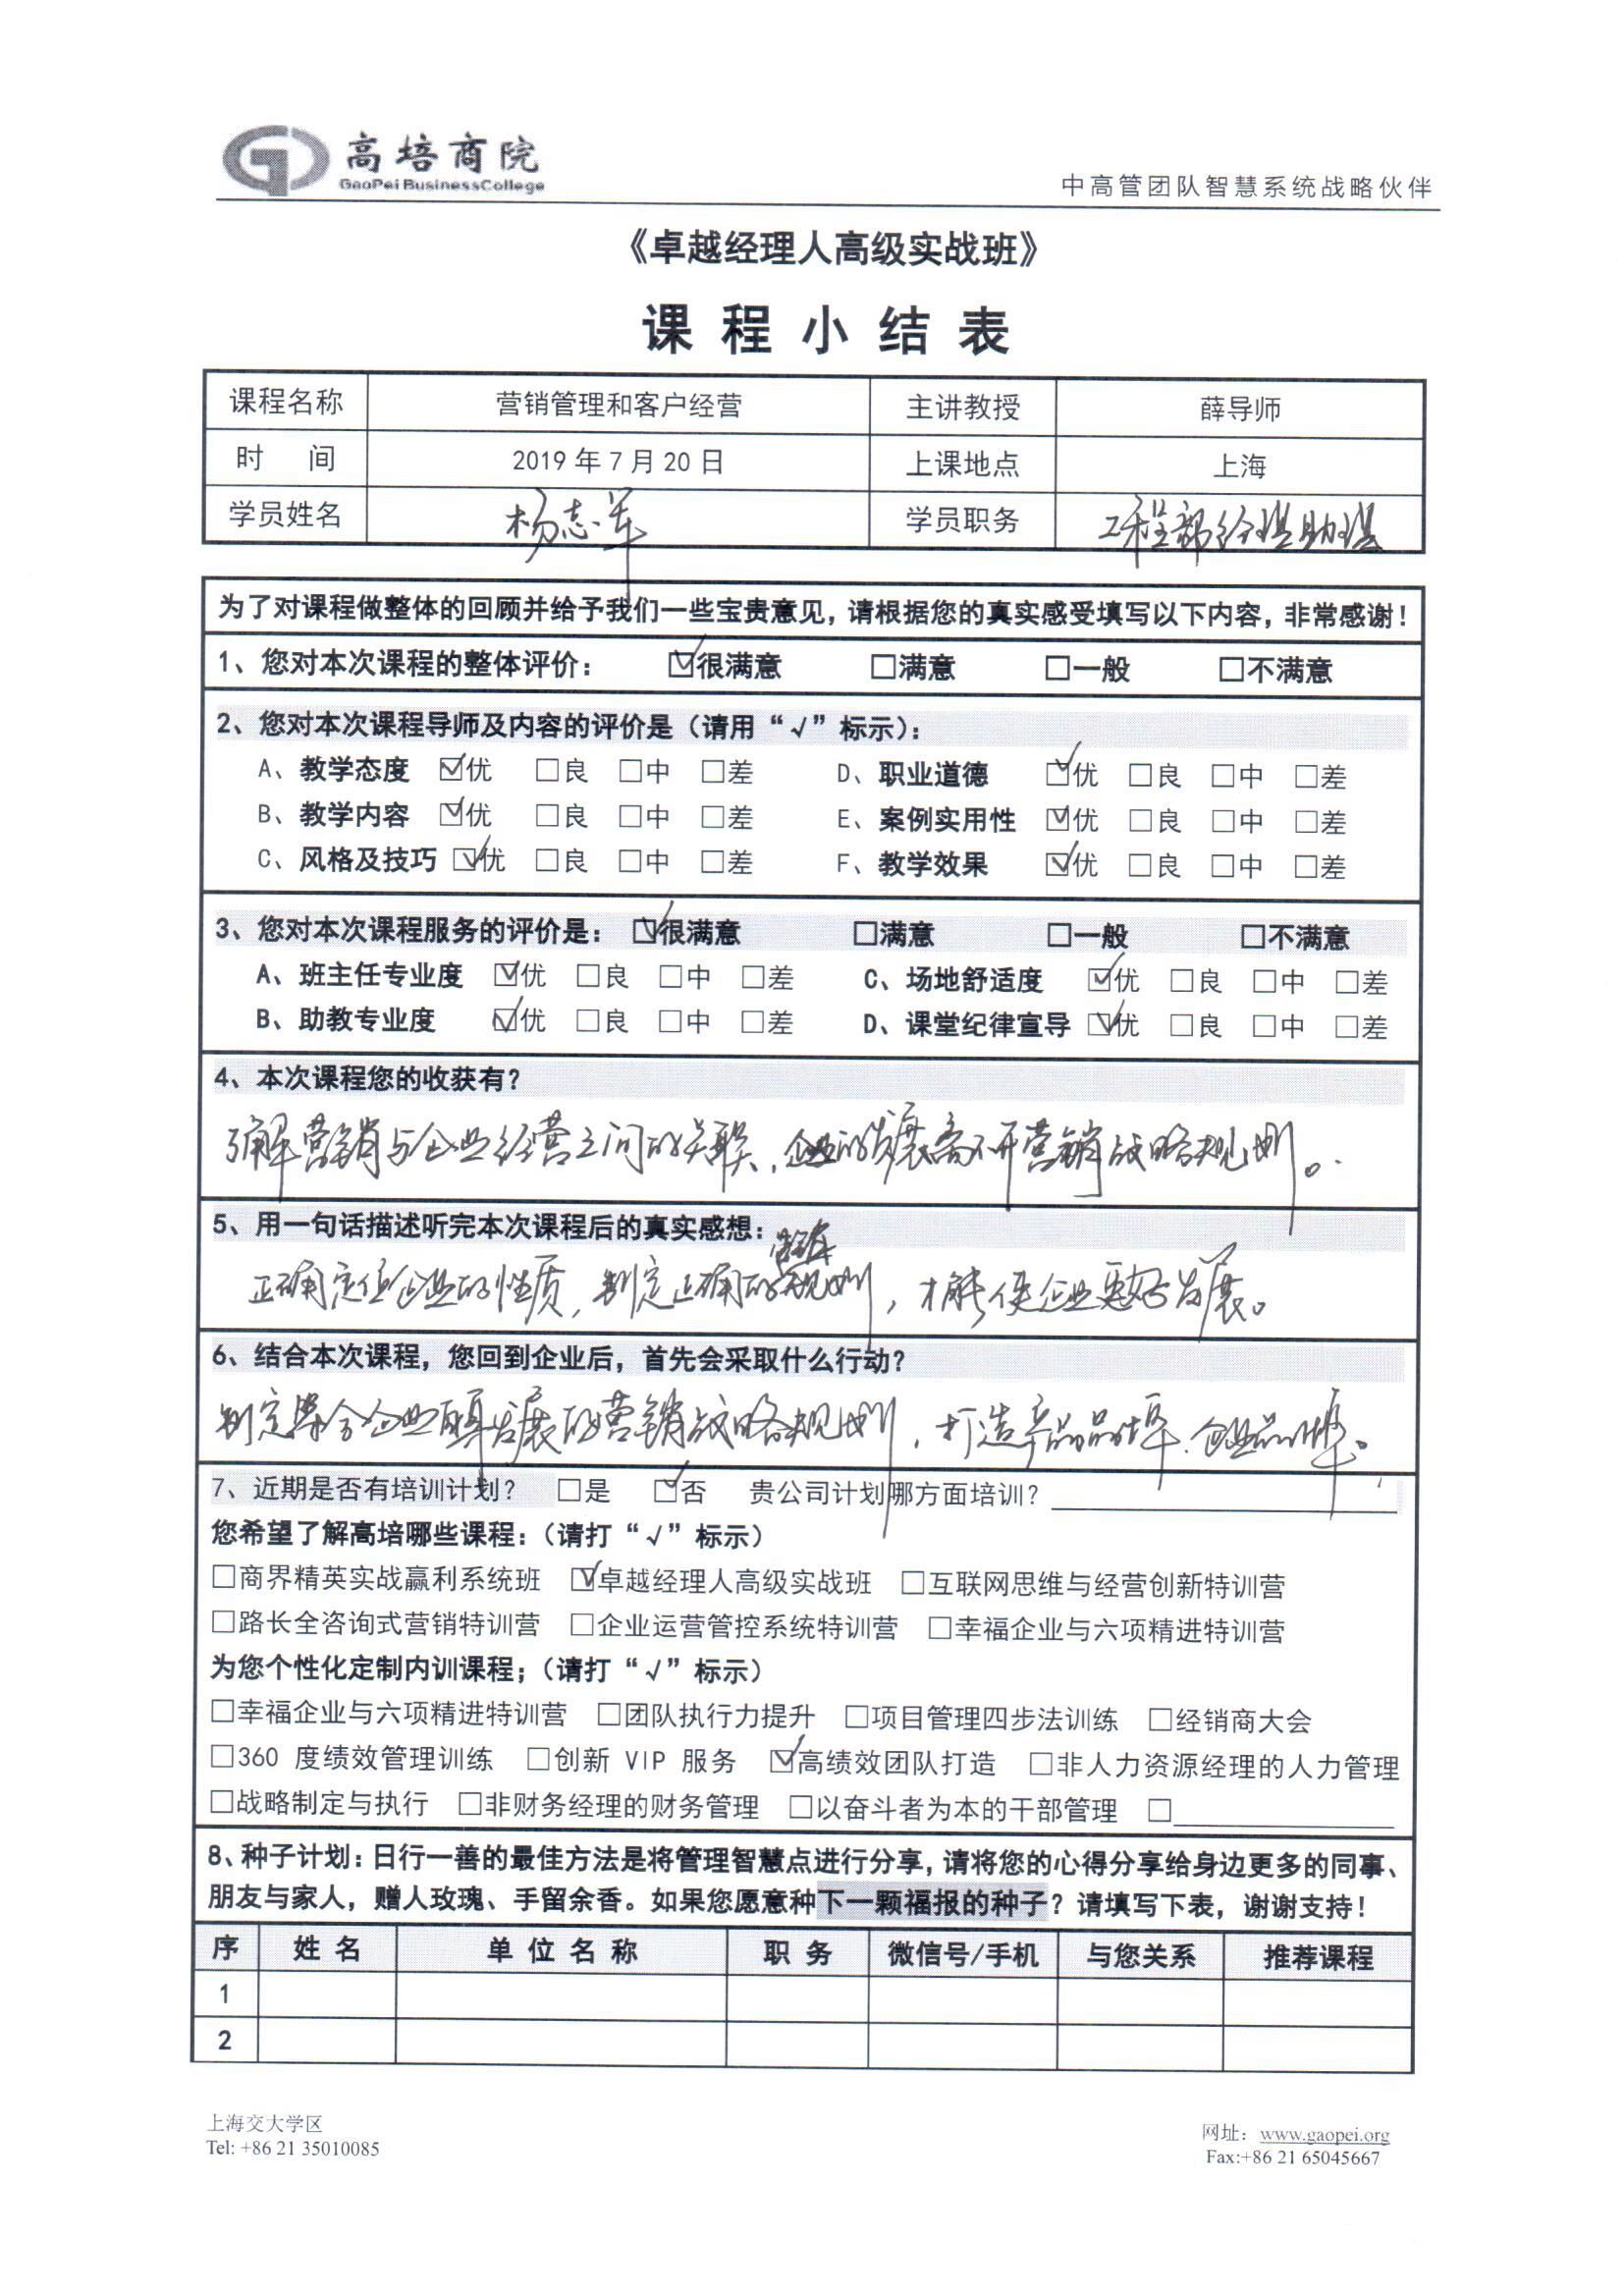 高培商院
GaoPei BusinessCollege
中高管团队智慧系统战略伙伴
《卓越经理人高级实战班》
课程小结表
课程名称 营销管理和客户经营 主讲教授 薛导师
时 间 2019年7月20日 上课地点 上海
学员姓名 杨志军 学员职务 工程部经理助理
为了对课程做整体的回顾并给予我们一些宝贵意见，请根据您的真实感受填写以下内容，非常感谢！
1、您对本次课程的整体评价： ☑很满意 □满意 □一般 □不满意
2、您对本次课程导师及内容的评价是（请用“√”标示）：
A、教学态度 ☑优 □良 □中 □差 D、职业道德 ☑优 □良 □中 □差
B、教学内容 ☑优 □良 □中 □差 E、案例实用性 ☑优 □良 □中 □差
C、风格及技巧 ☑优 □良 □中 □差 F、教学效果 ☑优 □良 □中 □差
3、您对本次课程服务的评价是： ☑很满意 □满意 □一般 □不满意
A、班主任专业度 ☑优 □良 □中 □差 C、场地舒适度 ☑优 □良 □中 □差
B、助教专业度 ☑优 □良 □中 □差 D、课堂纪律宣导 ☑优 □良 □中 □差
4、本次课程您的收获有？
了解营销与企业经营之间的关联，企业的发展离不开营销战略规划。
5、用一句话描述听完本次课程后的真实感想：
营销
正确定位企业的性质，制定正确的规划，才能使企业更好发展。
6、结合本次课程，您回到企业后，首先会采取什么行动？
制定符合企业发展的营销战略规划，打造产品品牌、企业品牌。
7、近期是否有培训计划？ □是 ☑否 贵公司计划哪方面培训？
您希望了解高培哪些课程：（请打“√”标示）
□商界精英实战赢利系统班 ☑卓越经理人高级实战班 □互联网思维与经营创新特训营
□路长全咨询式营销特训营 □企业运营管控系统特训营 □幸福企业与六项精进特训营
为您个性化定制内训课程；（请打“√”标示）
□幸福企业与六项精进特训营 □团队执行力提升 □项目管理四步法训练 □经销商大会
□360 度绩效管理训练 □创新 VIP 服务 ☑高绩效团队打造 □非人力资源经理的人力管理
□战略制定与执行 □非财务经理的财务管理 □以奋斗者为本的干部管理 □
8、种子计划：日行一善的最佳方法是将管理智慧点进行分享，请将您的心得分享给身边更多的同事、
朋友与家人，赠人玫瑰、手留余香。如果您愿意种下一颗福报的种子？请填写下表，谢谢支持！
序 姓名 单位名称 职务 微信号/手机 与您关系 推荐课程
1
2
上海交大学区
Tel: +86 21 35010085
网址：www.gaopei.org
Fax:+86 21 65045667